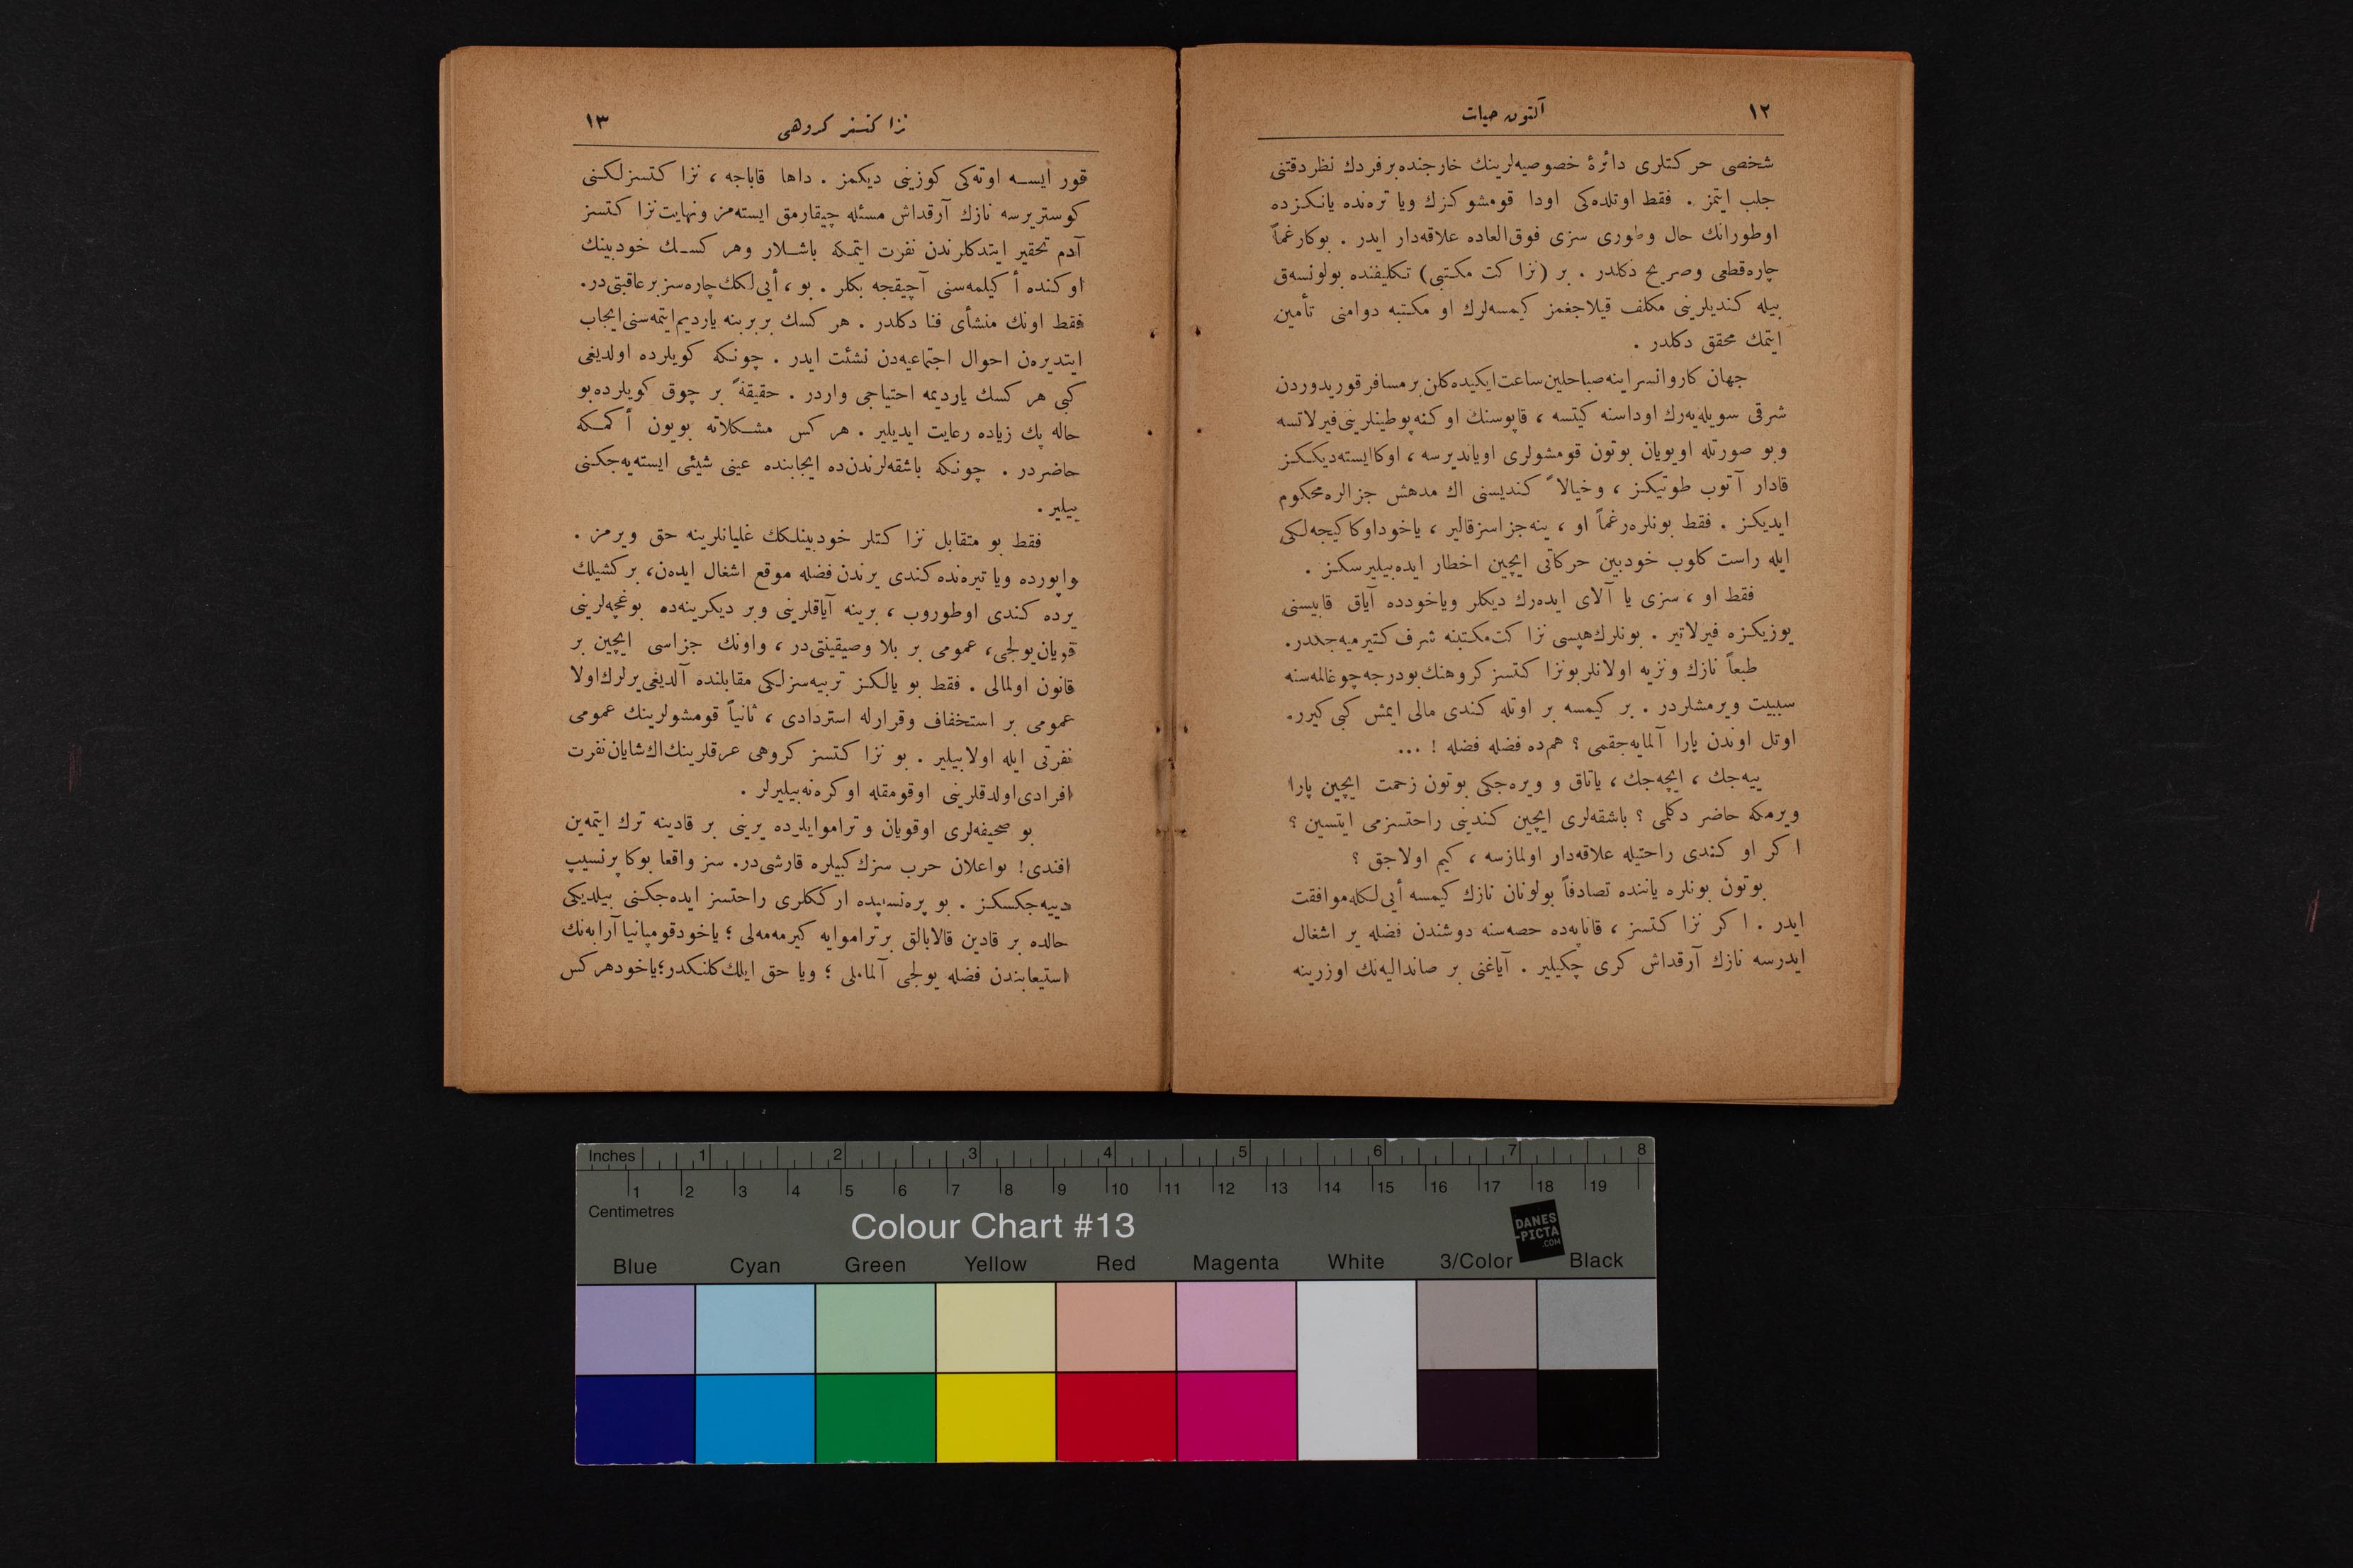 ١٢
آلتون حیات
شخصی حركتلری دائرۀ خصوصیه‌لرینك خارجنده برفردك نظردقتنی
جلب ایتمز . فقط اوتلده‌كی اودا قومشوكزك ویا تره‌نده یانكزده
اوطورانك حال وطوری سزی فوق‌العاده علاقه‌دار ایدر . بوكارغماً
چاره‌قطعی وصریح دكلدر . بر (نزاكت مكتبی) تكلیفنده بولونسه‌ق
بیله كندیلرینی مكلف قیلاجغمز كیمسه‌لرك او مكتبه دوامنی تأمین
ایتمك محقق دكلدر .
جهان كاروانسراینه صباحلین ساعت ایكیده كلن بر مسافر قوریدوردن
شرقی سویله‌یه‌رك اوداسنه كیتسه ، قاپوسنك اوكنه پوطینلرینی فیرلاتسه
وبو صورتله اویویان بوتون قومشولری اویاندیرسه ، اوكا ایسته‌دیككز
قادار آتوب طوتیكز ، وخیالاً كندیسنی اك مدهش جزالره محكوم
ایدیكز . فقط بونلره‌رغماً او ، ینه جزاسزقالیر ، یاخود اوكا كیجه‌لكی
ایله راست كلوب خودبین حركاتی ایچین اخطار ایده‌بیلیرسكز .
فقط او ، سزی یا آلای ایده‌رك دیكلر ویاخودده آیاق قابیسنی
یوزیكزه فیرلاتیر . بونلرك هپسی نزاكت مكتبنه شرف كتیرمیه‌جكدر.
طبعاً نازك ونزیه اولانلر بونزاكتسز كروهنك بودرجه چوغالمه‌سنه
سببیت ویرمشلردر . بر كیمسه بر اوتله كندی مالی ایمش كبی كیرر.
اوتل اوندن پارا آلمایه‌جقمی ؟ هم‌ده فضله فضله ! ...
ییه‌جك ، ایچه‌جك ، یاتاق و ویره‌جكی بوتون زحمت ایچین پارا
ویرمكه حاضر دكلمی ؟ باشقه‌لری ایچین كندینی راحتسزمی ایتسین ؟
اكر او كندی راحتیله علاقه‌دار اولمازسه ، كیم اولاجق ؟
بوتون بونلره یاننده تصادفاً بولونان نازك كیمسه أیی‌لكله موافقت
ایدر . اكر نزاكتسز ، قاناپه‌ده حصه‌سنه دوشندن فضله یر اشغال
ایدرسه نازك آرقداش كری چكیلیر . آیاغنی بر صاندالیه‌نك اوزرینه
١٣
نزاكتسز كروهی
قور ایسه اوته‌كی كوزینی دیكمز . داها قاباجه ، نزاكتسزلكنی
كوستریرسه نازك آرقداش مسئله چیقارمق ایسته‌مز ونهایت نزاكتسز
آدم تحقیر ایتدكلرندن نفرت ایتمكه باشلار وهر كسك خودبینك
اوكنده أكیلمه‌سنی آچیقجه بكلر . بو ، أیی‌لكك چاره‌سز برعاقبتی‌در.
فقط اونك منشأی فنا دكلدر . هر كسك بربرینه یاردیم ایتمه‌سنی ایجاب
ایتدیره‌ن احوال اجتماعیه‌دن نشئت ایدر . چونكه كویلرده اولدیغی
كبی هر كسك یاردیمه احتیاجی واردر . حقیقةً بر چوق كویلرده بو
حاله پك زیاده رعایت ایدیلیر . هر كس مشكلاته بویون أكمكه
حاضردر . چونكه باشقه‌لرندن‌ده ایجابنده عینی شیئی ایسته‌یه‌جكنی
بیلیر .
فقط بو متقابل نزاكتلر خودبینلكك غلیانلرینه حق ویرمز .
واپورده ویا تیره‌نده كندی یرندن فضله موقع اشغال ایده‌ن، بر كشیلك
یرده كندی اوطوروب ، برینه آیاقلرینی وبر دیكرینه‌ده بوغچه‌لرینی
قویان یولجی، عمومی بر بلا وصیقینتی‌در ، واونك جزاسی ایچین بر
قانون اولمالی . فقط بو یالكز تربیه‌سزلكی مقابلنده آلدیغی یرلرك اولا
عمومی بر استخفاف وقرارله استردادی ، ثانیاً قومشولرینك عمومی
نفرتی ایله اولابیلیر . بو نزاكتسز كروهی عرقلرینك اك شایان نفرت
افرادی اولدقلرینی اوقومقله اوكره‌نه‌بیلیرلر .
بو صحیفه‌لری اوقویان و تراموایلرده یرینی بر قادینه ترك ایتمه‌ین
افندی! بواعلان حرب سزك كبیلره قارشی‌در. سز واقعا بوكا پرنسیپ
دییه‌جكسكز . بو پره‌نسیپده ارككلری راحتسز ایده‌جكنی بیلدیكی
حالده بر قادین قالابالق برتراموایه كیرمه‌مه‌لی ؛ یاخود قومپانیا آرابه‌نك
استیعابندن فضله یولجی آلماملی ؛ ویا حق ایلك كلنكدر؛ یاخود هر كس
Inches 1 2 3 4 5 6 7 8
1 2 3 4 5 6 7 8 9 10 11 12 13 14 15 16 17 18 19
Centimetres
Colour Chart #13
DANES
-PICTA
.COM
Blue Cyan Green Yellow Red Magenta White 3/Color Black